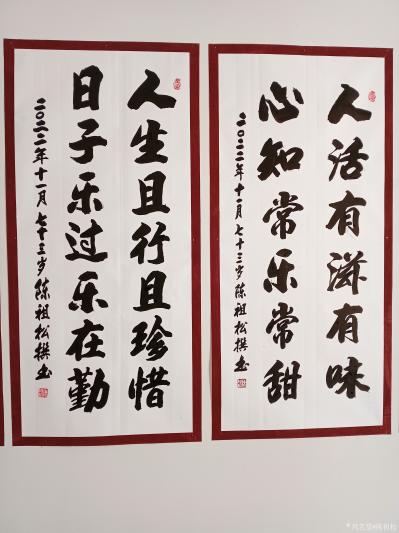 人活有滋有味
心知常乐常甜
二〇二二年十一月七十三岁陈祖松撰书
人生且行且珍惜
日子乐过乐在勤
二〇二二年十一月七十三岁陈祖松撰书